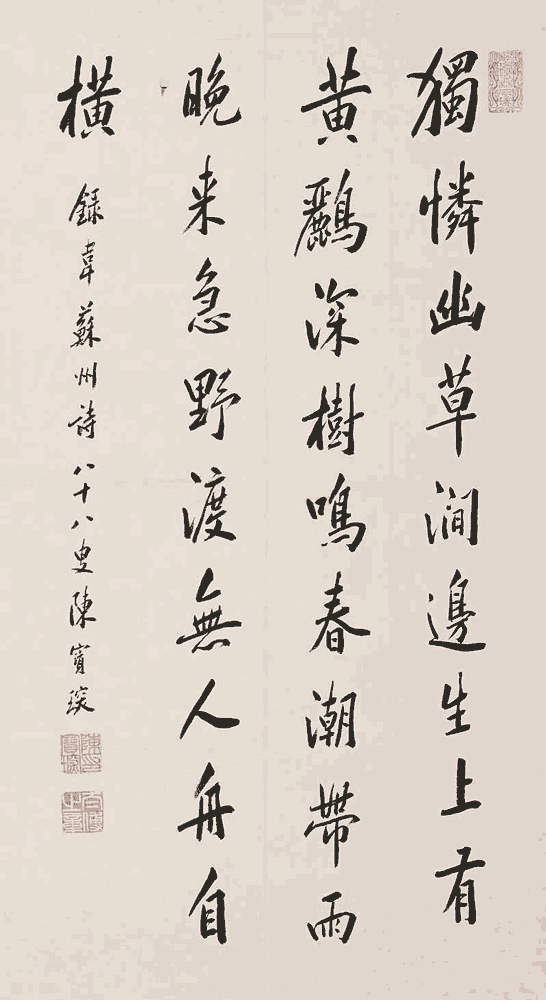 獨憐幽草澗邊生上有
黄鸝深樹鳴春潮帶雨
晚来急野渡無人舟自
橫
録韋蘇州詩八十八叟陳寶琛